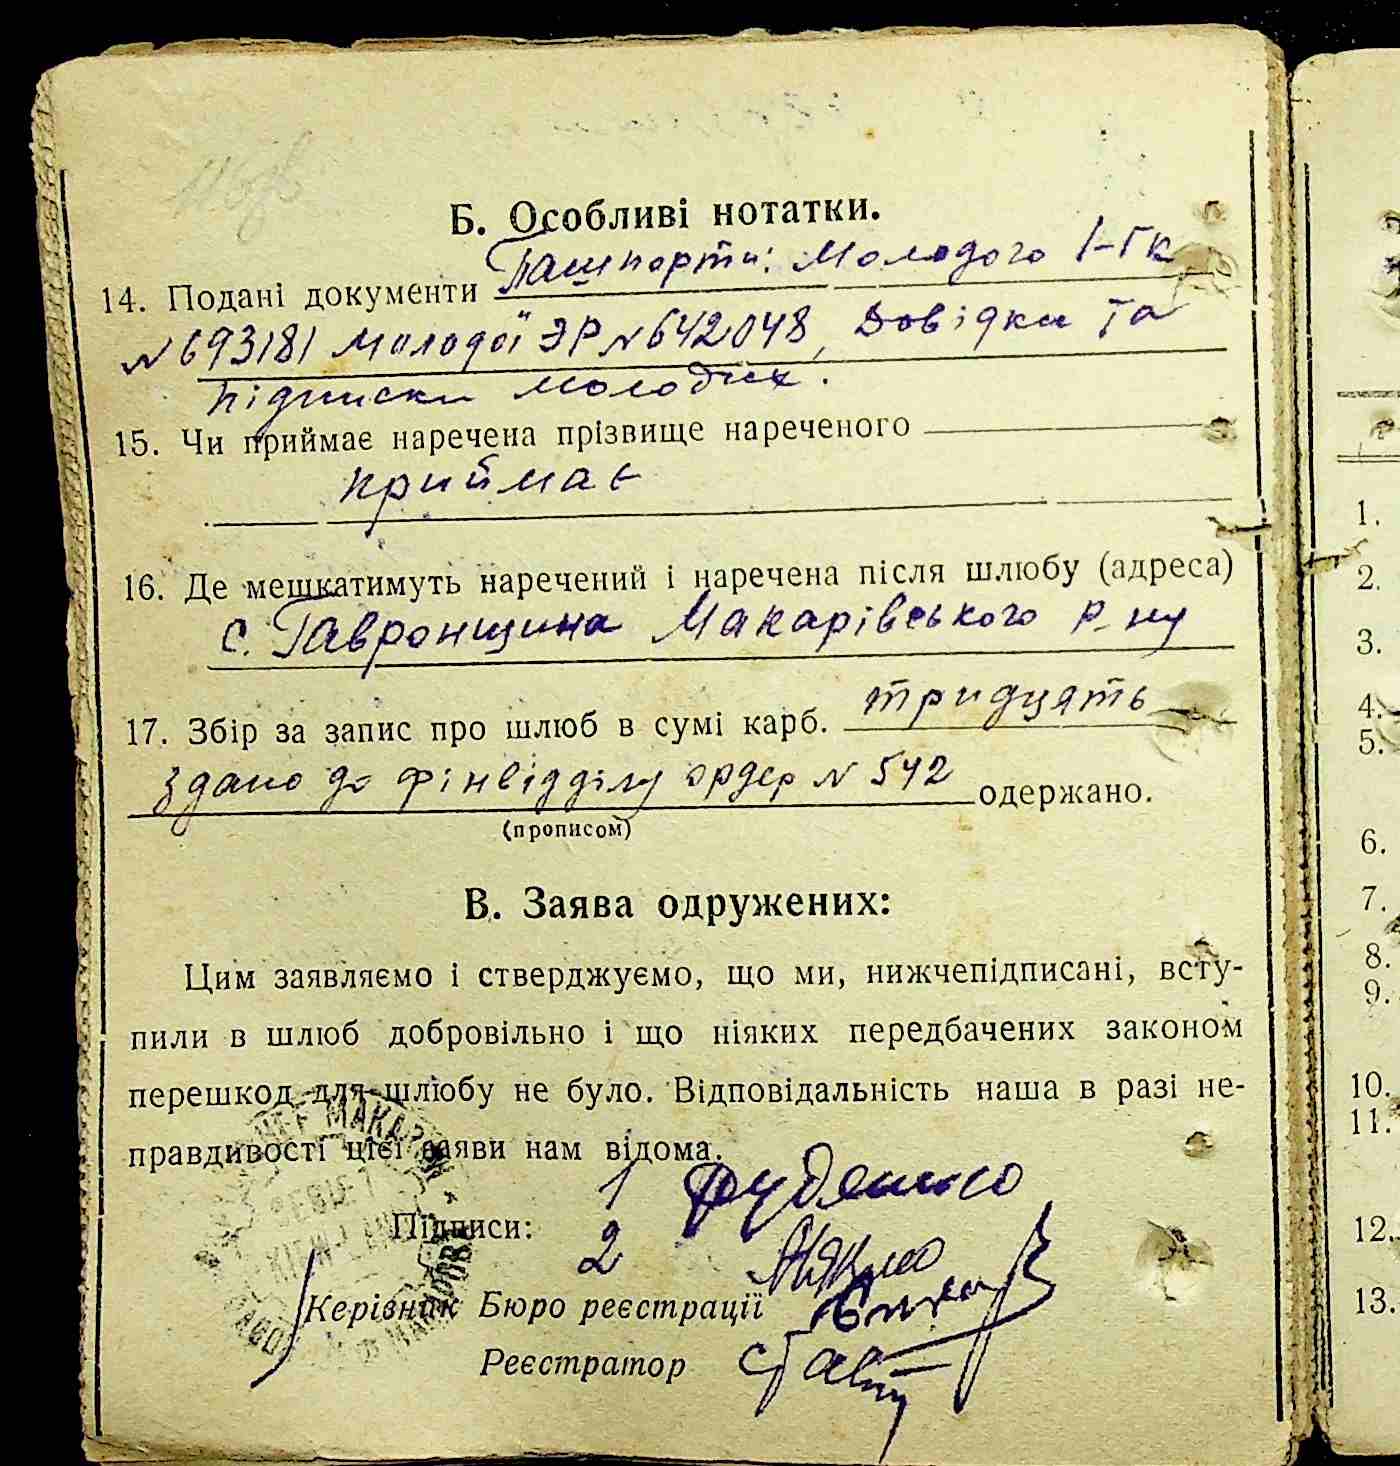 Б. Особливі нотатки.
14. Подані документи Пашпорти: Молодого І-ГК
№ 693181 Молодої ЭР № 642048, Довідки та
підписки молодих.
15. Чи приймає наречена прізвище нареченого
приймає
16. Де мешкатимуть наречений і наречена після шлюбу (адреса)
с. Гавронщина Макарівського р-ну
17. Збір за запис про шлюб в сумі карб. тридцять
здано до фінвідділу ордер № 542 одержано.
(прописом)
В. Заява одружених:
Цим заявляємо і стверджуємо, що ми, нижчепідписані, всту-
пили в шлюб добровільно і що ніяких передбачених законом
перешкод для шлюбу не було. Відповідальність наша в разі не-
правдивості цієї заяви нам відома.
1 Руденко
Підписи:
2
Керівник Бюро реєстрації
Реєстратор
1.
2.
3.
4.
5.
6.
7.
8.
9.
10.
11.
12.
13.